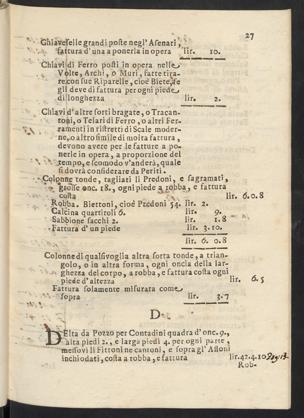 27
Chiaveselle grandi poste negl' Asenari,
fattura d'una a ponerla in opera lir. 10.
Chiavi di Ferro posti in opera nelle
Volte, Archi, o Muri, fatte tira-
re con sue Riparelle, cioè Biete, se
gli deve di fattura per ogni piede
di longhezza lir. 2.
Chiavi d'altre sorti bragate, o Tracan-
tono, o Telari di Ferro, o altri Fer-
ramenti in ristretti di Scale moder-
ne, o altro simile di molta fattura,
devono avere per le fatture a po-
nerle in opera, a proporzione del
tempo, e scomodo v'anderà, quale
si dovrà considerare da Periti.
Colonne tonde, tagliati li Predoni, e sagramati,
grosse onc. 18., ogni piede a robba, e fattura
costa lir. 6.0.8
Robba. Biettoni, cioè Predoni 54. lir. 2.
Calcina quartiroli 6. lir. 9.
Sabbione sacchi 2. lir. 1.8
Fattura d'un piede lir. 3.10.
lir. 6. 0.8
Colonne di qualsivoglia altra sorta tonde, a trian-
golo, o in altra forma, ogni oncia della lar-
ghezza del corpo, a robba, e fattura costa ogni
piede d'altezza lir. 6.5
Fattura solamente misurata come
sopra lir. 3.7
D
DElta da Pozzo per Contadini quadra d'onc. 9.,
alta piedi 2., e larga piedi 4. per ogni parte,
messovi li Fittoni ne cantoni, e sopra gl' Assoni
inchiodati, costa a robba, e fattura lir. 42.4.10
Rob-